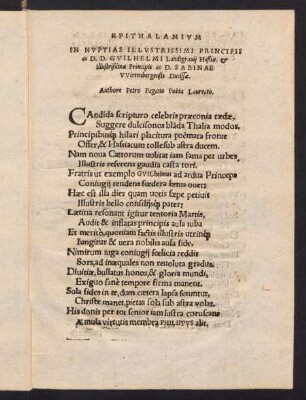 EPITHALAMIVM
IN NVPTIAS ILLVSTRISSIMI PRINCIPIS
ac D. D. GVILHELMI Landgravij Hassiæ &
illustrissimæ Principis ac D. SABINAE
VVirtenbergensis Ducissæ.
Authore Petro Pagano Poëta Laureato.
CAndida scripturo celebris præconia tædæ,
Suggere dulcisonos blāda Thalia modos.
Principibusq́; hilari placitura poëmata fronte
Offer, & Hassiacum tollesub astra ducem.
Nam noua Cattorum uolitat iam fama per urbes,
Illustris referens gaudia casta tori.
Fratris ut exemplo GVILhelmus ad ardua Princeps
Coniugij tendens fœdera lætus ouet
Hæc est illa dies quam uotis sæpe petiuit
Illustris bello consilijsq́; pater:
Lætitia resonant igitur tentoria Martis,
Audit & inflatas principis aula tuba
Et meritò, quoniam factis illustris utrinq́;
Iungitur & uera nobilis aula fide.
Nimirum iuga coniugij fœlicia reddit
Sors, ad inæquales non reuoluta gradus.
Diuitiæ, bullatus honos, & gloria mundi,
Exiguo sanè tempore firma manent.
Sola fides in te, dum cætera lapsa feruntur,
Christe manet, pietas sola sub astra volat.
His donis per ter senior iam lustra coruscans
Æmula virtutis membra PHILIPPVS alit.